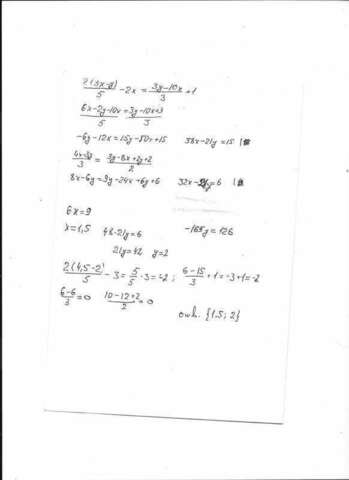 2(3x-y)/5 - 2x = (3y-10x)/3 + 1
(6x-2y-10x)/5 = (3y-10x+3)/3
-6y-12x=15y-50x+15 38x-21y=15
(4x-3y)/3 = (3y-8x+2y+2)/2
8x-6y=9y-24x+6y+6 32x-21y=6
6x=9
x=1,5 48-21y=6 -165y=126
21y=42 y=2
2(4,5-2)/5 - 3 = 5/5 - 3 = -2; (6-15)/3 + 1 = -3+1 = -2
(6-6)/3 = 0 (10-12+2)/2 = 0
отв. {1.5; 2}